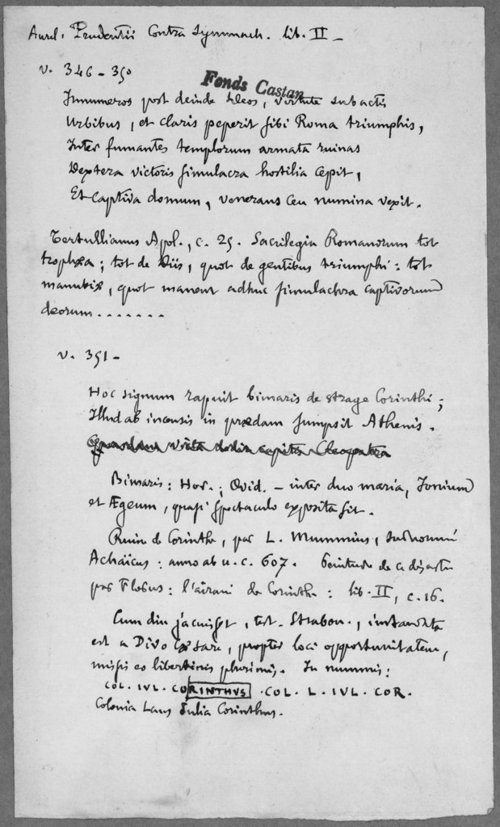 Aurel. Prudentii Contra Symmach. lib. II –
v. 346 – 350
Fonds Castan
Innumeros post deinde Deos, virtute subactis
Urbibus, et claris peperit sibi Roma triumphis,
Inter fumantes templorum armata ruinas
Dextera victoris simulacra hostilia cepit,
Et captiva domum, venerans ceu numina vexit.
Tertullianus Apol., c. 25. Sacrilegia Romanorum tot
trophæa; tot de Diis, quot de gentibus triumphi: tot
manubiæ, quot manent adhuc simulachra captivorum
deorum.......
v. 351 –
Hoc signum rapuit bimaris de strage Corinthi;
Illud ab incensis in prædam sumpsit Athenis.
Quasdam victa dedit capitis Cleopatra
Bimaris: Hor.; Ovid. – inter duo maria, Ionium
et Ægeum, quasi spectaculo exposita sit.
Ruine de Corinthe, par L. Mummius, surnommé
Achaïcus: anno ab u. c. 607. Peinture de ce désastre
par Florus: l'airain de Corinthe: lib. II, c. 16.
Cum diu jacuisset, test. Strabon., instaurata
est a Divo Cæsare, propter loci opportunitatem,
missis eo libertinis plurimis. In nummis:
COL. IVL. CORINTHVS . COL. L. IVL. COR.
Colonia Laus Julia Corinthus.